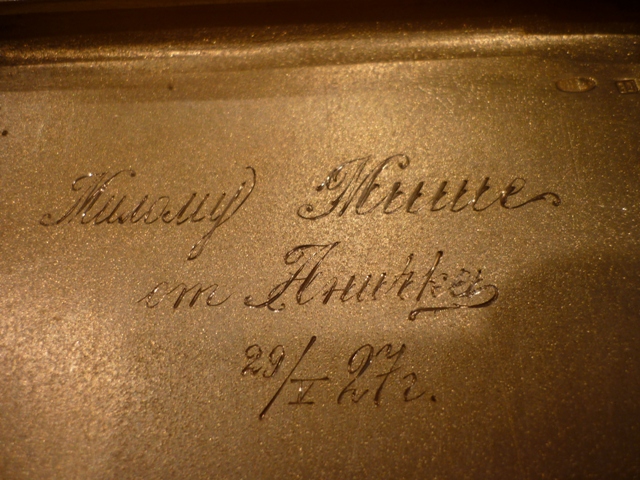 Милому Мише
от Анички
29/I 27 г.